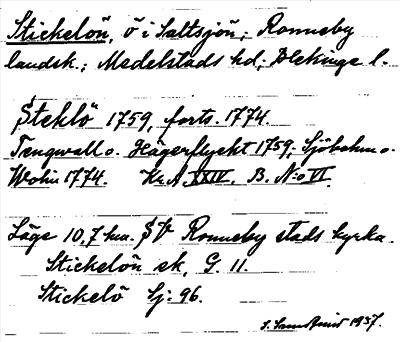 Stickelön, ö i Saltsjön; Ronneby
landsk.; Medelstads hd; Blekinge l.
Steklö 1759, forts. 1774.
Tengwall o. Hägerflycht 1759; Sjöbohm o.
1774. Kr. A. XXIV. B. N:o VI.
Läge 10,7 km. SV Ronneby stads kyrka.
Stickelön ek, G. 11.
Stickelö Sj: 96.
1937.